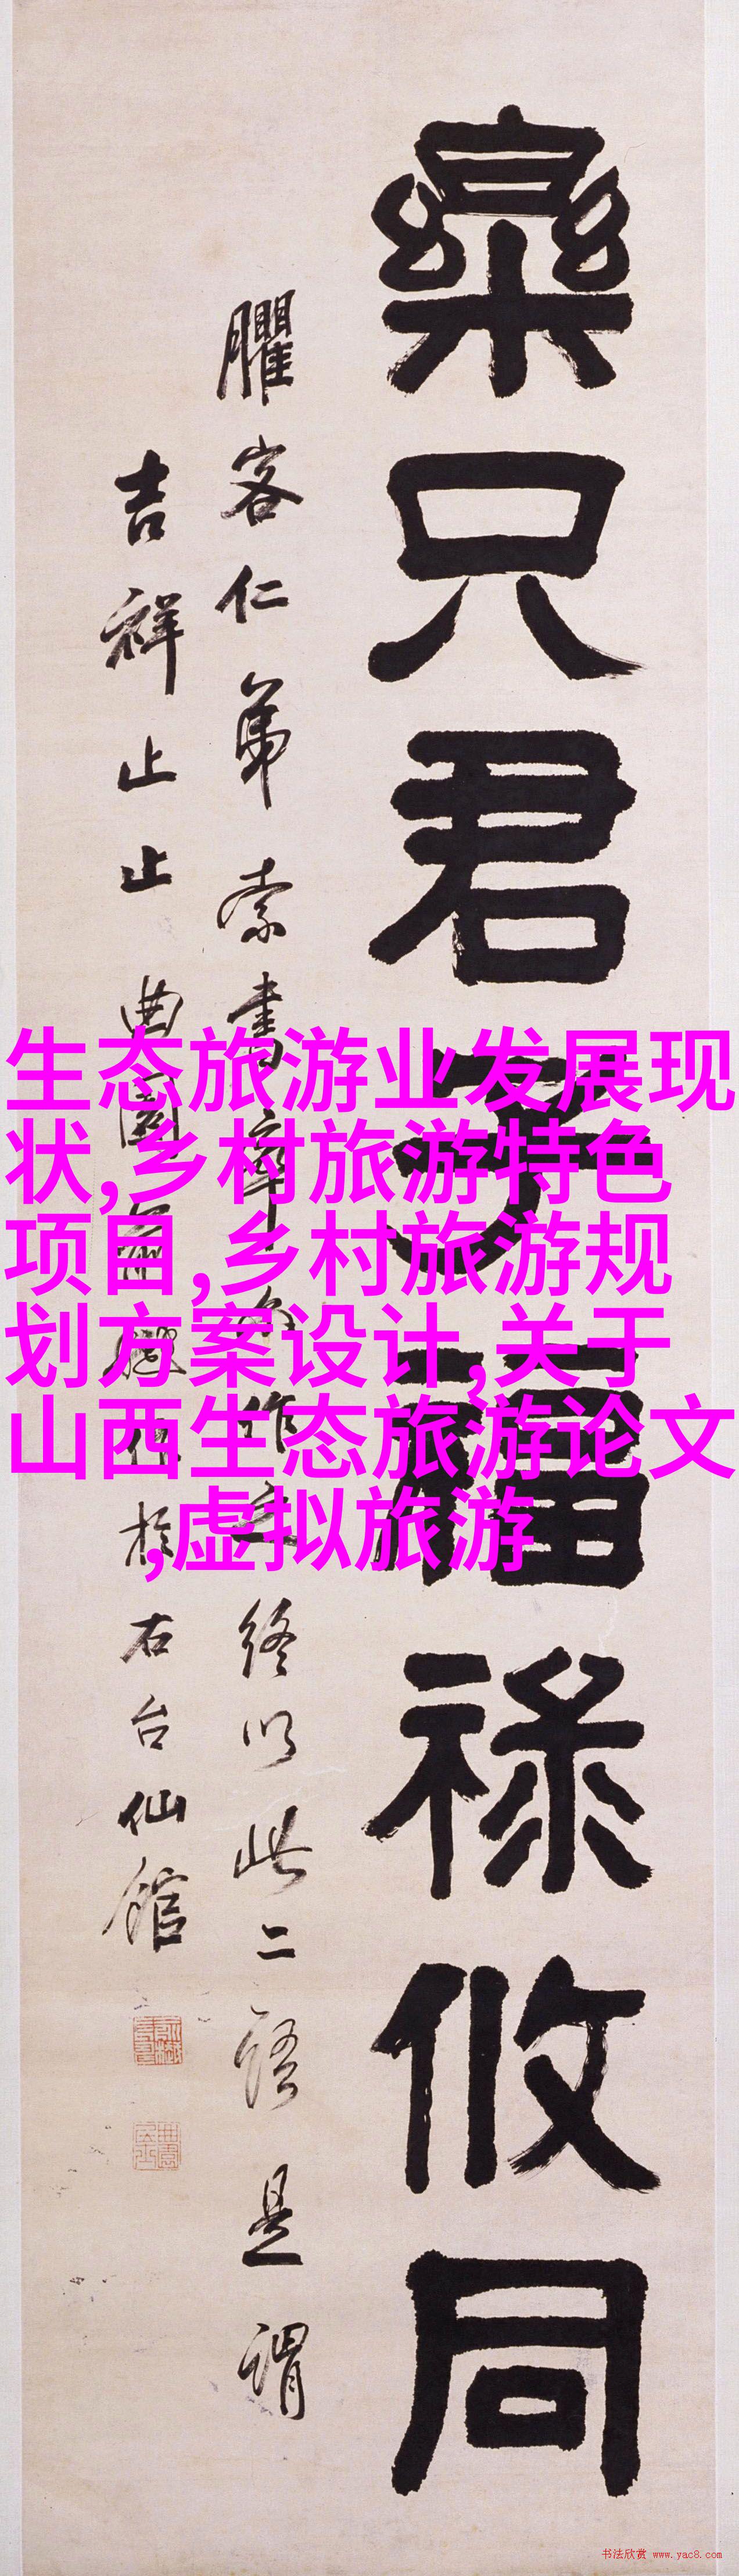 樂只君子福祿攸同
臞客仁弟索書率作之終以此二語是謂
吉祥止止曲園俞樾作於右台仙館
生态旅游业发展现
状,乡村旅游特色
项目,乡村旅游规
划方案设计,关于
山西生态旅游论文
,虚拟旅游
书法欣赏 www.yac8.com